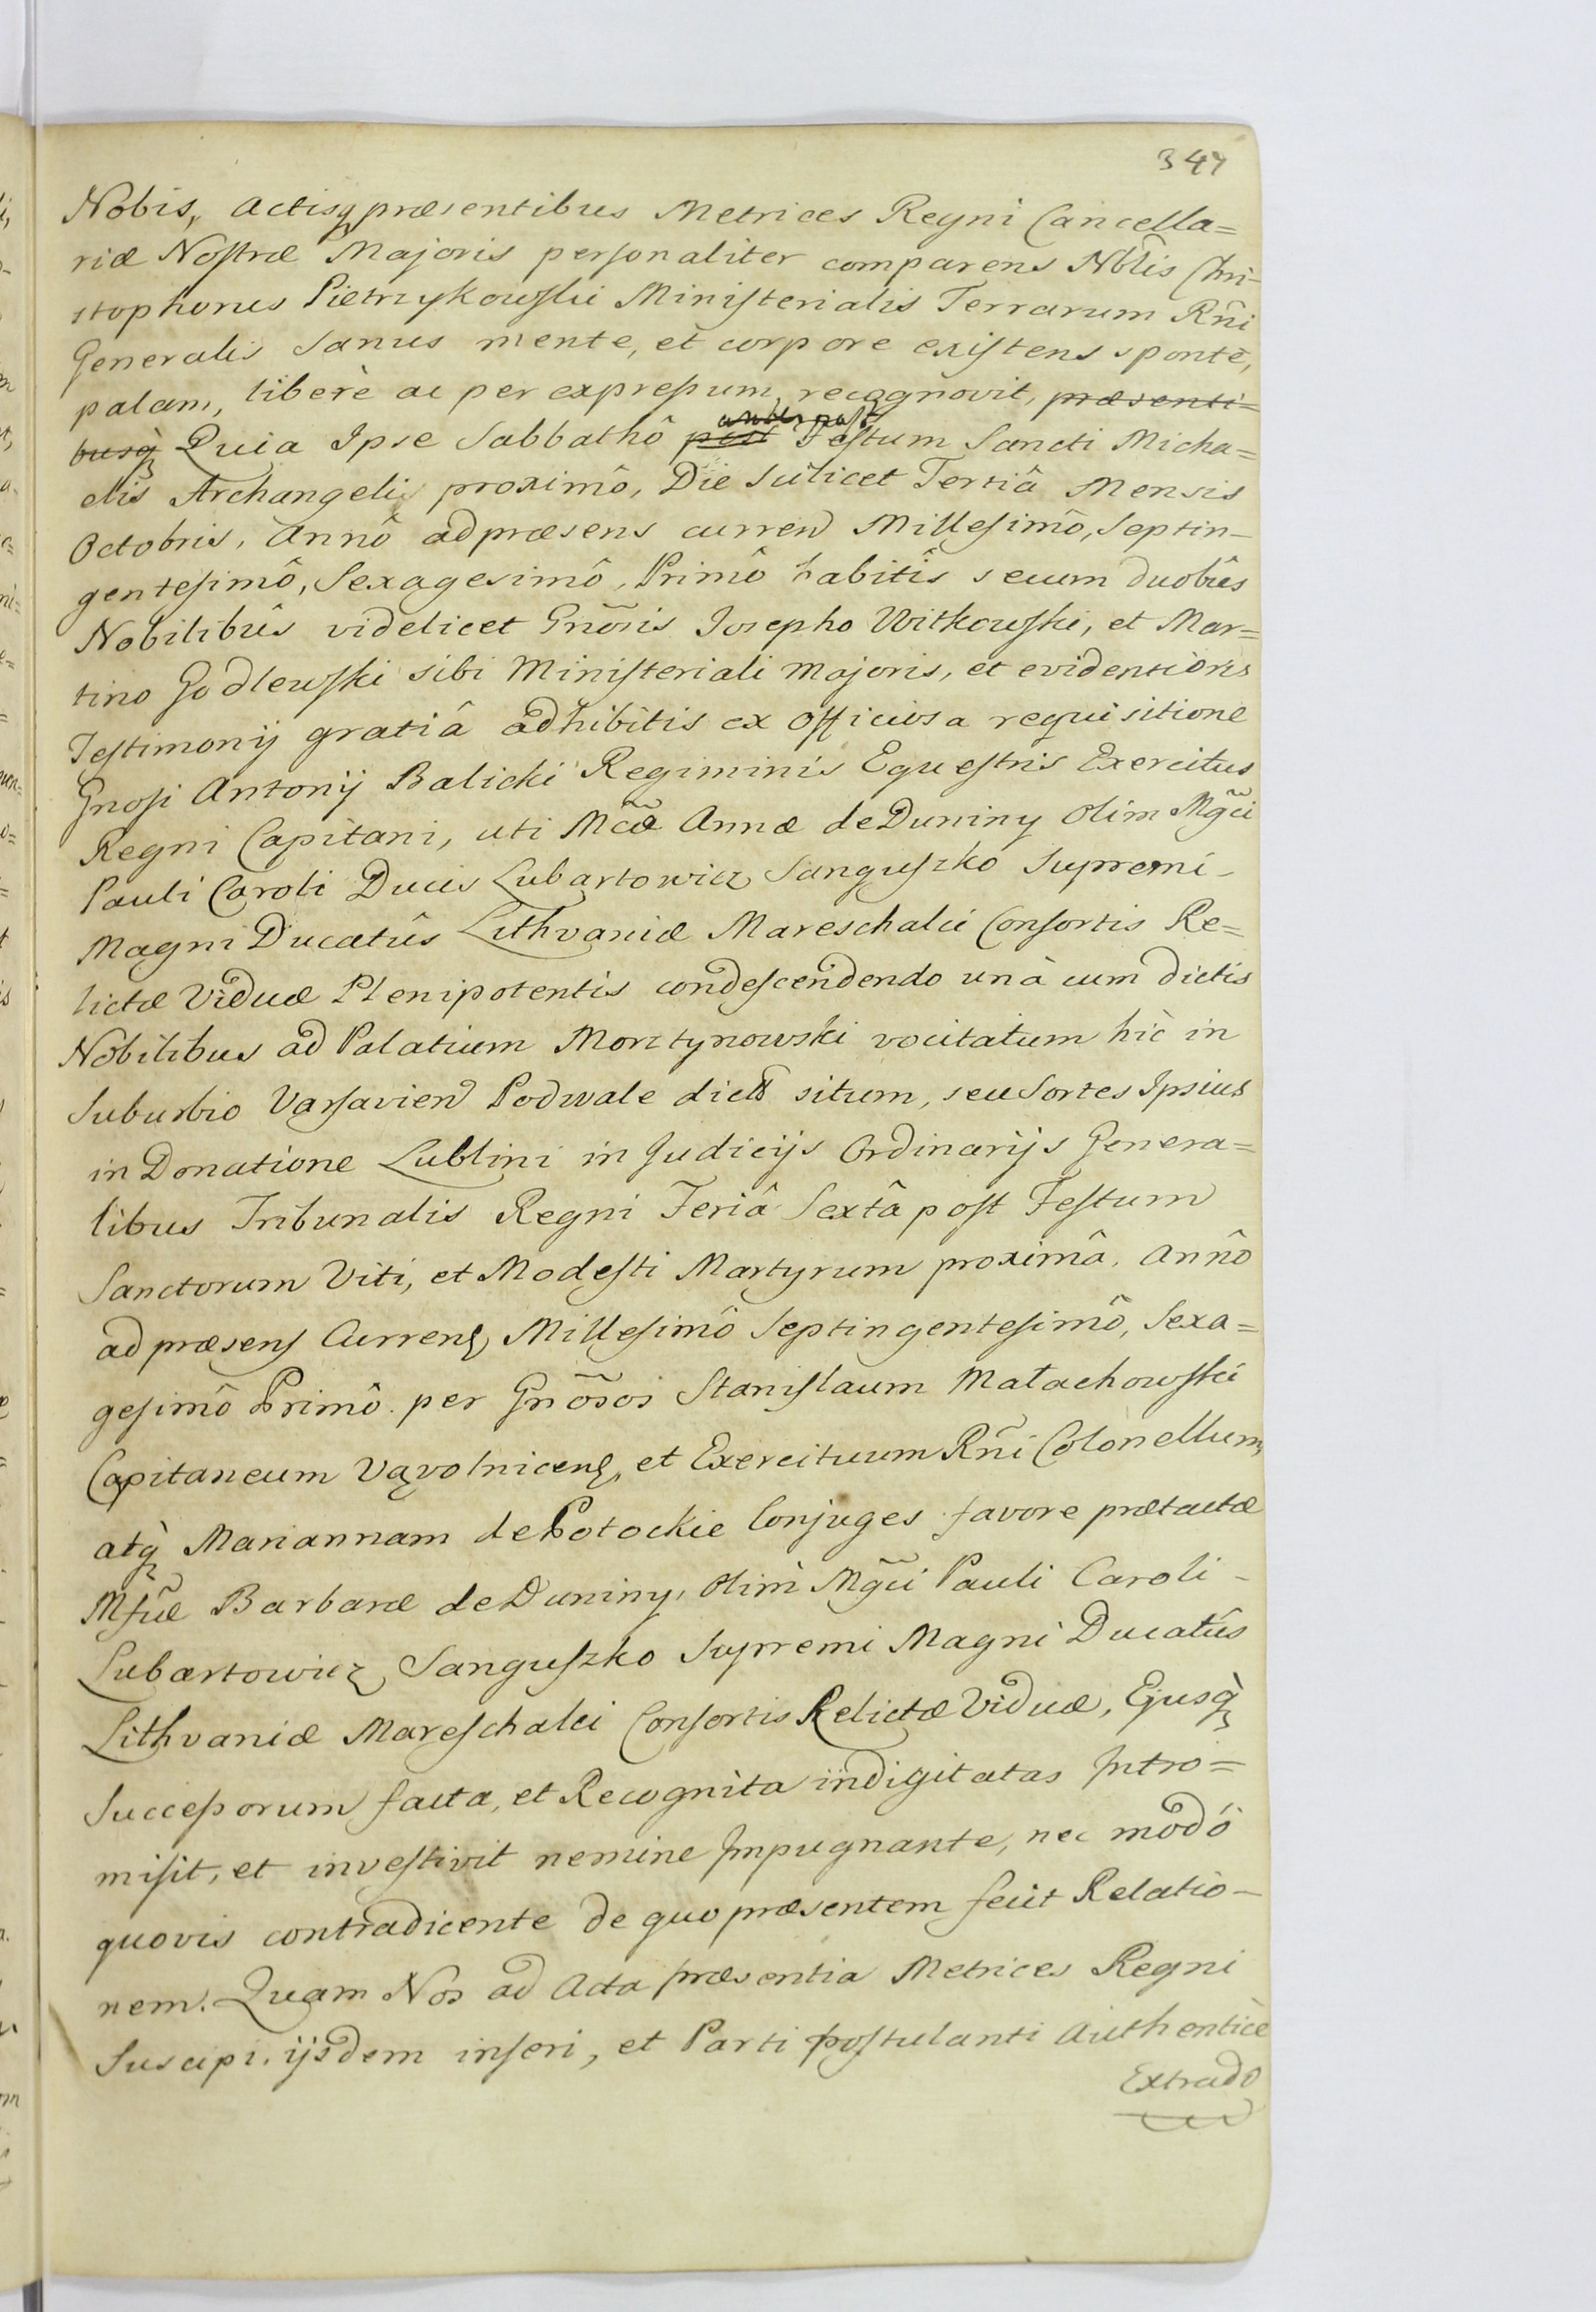 347
Nobis, Actisq præsentibus Metrices Regni Cancella=
riæ Nostræ Majoris personaliter comparens Nblis Chri-
stophorus Pietrzykowski Ministerialis Terrarum Rñi
Generalis Sanus mente, et corpore existens sponte,
palam, liberè ac per expressum recognovit, præsenti=
busq̀ Quia Ipse Sabbathô post Festum Sancti Micha=
elis Archangelis proximô, Die Scilicet Tertiâ Mensis
Octobris, Annô ad præsens curren Millesimô, Septin-
gentesimô, Sexagesimô, Primô habitîs secum duobûs
Nobilibûs videlicet Gnõsis Josepho Witkowski, et Mar=
tino Godlewski sibi Ministeriali Majoris, et evidentioris
Testimonij gratiâ adhibitis ex officiosa requisitione
Gnosi Antonij Balicki Regiminis Equestris Exercitus
Regni Capitani, uti Mcæ̃ Annæ de Duniny Olim Mgci
Pauli Caroli Ducis Lubartowicz Sanguszko Supremi-
Magni Ducatûs Lithvaniæ Mareschalci Consortis Re=
lictæ Viduæ Plenipotentis condescendendo unà cum dictis
Nobilibus ad Palatium Morztynowski vocitatum hìc in
Suburbio Varsavien Podwale dict situm, seu Sortes Ipsius
in Donatione Lublini in Judicijs Ordinarijs Genera=
libus Tribunalis Regni Feriâ Sextâ post Festum
Sanctorum Viti, et Modesti Martyrum proximâ, Annô
ad præsens Currens Millesimô Septingentesimô, Sexa=
gesimô Primô per Gnõsos Stanislaum Małachowski
Capitaneum Vąvolnicens, et Exercituum Rñi Colonellum,
atq̀ Mariannam de Potockie Conjuges favore prætactæ
Barbaræ de Duniny, Olim Mgci Pauli Caroli-
Lubartowicz Sanguszko Supremi Magni Ducatûs
Lithvaniæ Mareschalci Consortis Relictæ Viduæ, Ejusq̀
Successorum facta, et Recognita indigitatas Intro=
misit, et investivit nemine Impugnante, nec modô
quovis contradicente de quo præsentem fecit Relatio-
nem. Quam Nos ad Acta præsentia Metrices Regni
Suscipi, ijsdem inseri, et Parti postulanti Authenticè
Extrado